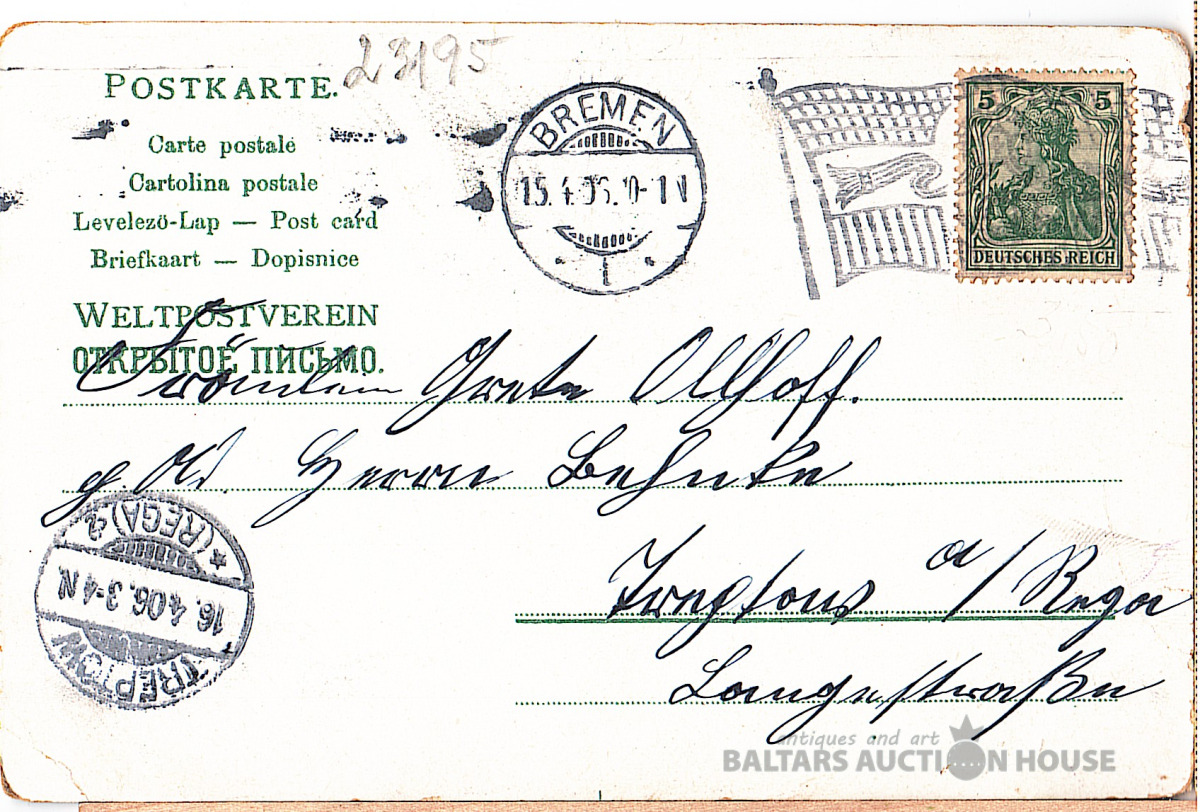 23195
POSTKARTE.
Carte postale
Cartolina postale
Levelező-Lap — Post card
Briefkaart — Dopisnice
WELTPOSTVEREIN
ОТКРЫТОЕ ПИСЬМО.
BREMEN
15.4.06. 10-11 V
1
5 5
DEUTSCHES REICH
Fräulein Grete Ollhoff.
Herrn Behnke
Treptow a/Rega
Langestraße
TREPTOW
16.4.06. 3-4 N.
* (REGA) a
antiques and art
BALTARS AUCTION HOUSE